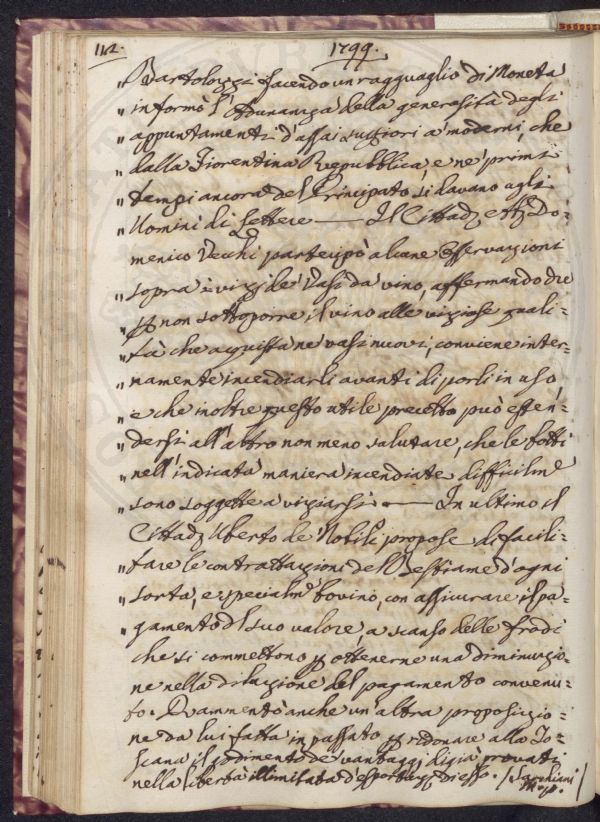 112. 1799.
„ Bartolozzi facendo un ragguaglio di Moneta
„ informò l'Adunanza della generosità degli
„ appuntamenti d'assai superiori a' moderni, che
„ dalla Fiorentina Repubblica e ne' primi
„ tempi ancora del Principato si davano agli
„ Uomini di Lettere —— Il Cittadº Do-
menico Vecchi partecipò alcune Osservazioni
„ sopra i vizj de' Vasi da vino, affermando che
„ p non sottoporre il vino alle viziose quali-
„ tà che acquista ne' vasi nuovi, conviene inter-
„ namente incendiarli avanti di porli in uso,
„ e che inoltre questo utile precetto può esten-
„ dersi all'altro non meno salutare, che le botti
„ nell'indicata maniera incendiate difficilmᵉ
„ sono soggette a viziarsi —— In ultimo il
„ Cittadº Uberto de' Nobili propose di facili-
„ tare le contrattazioni del Bestiame d'ogni
„ sorta, e specialmᵉ bovino, con assicurare il pa-
„ gamento del suo valore, a scanso delle frodi
che si commettono p ottenerne una diminuzio-
ne nella dilazione del pagamento convenu-
to. Rammentò anche un'altra proposizio-
ne da lui fatta in passato p ridonare alla To-
scana il godimento de' vantaggj di già provati
nella libertà illimitata d'esportazº di esso. / Sarchiani